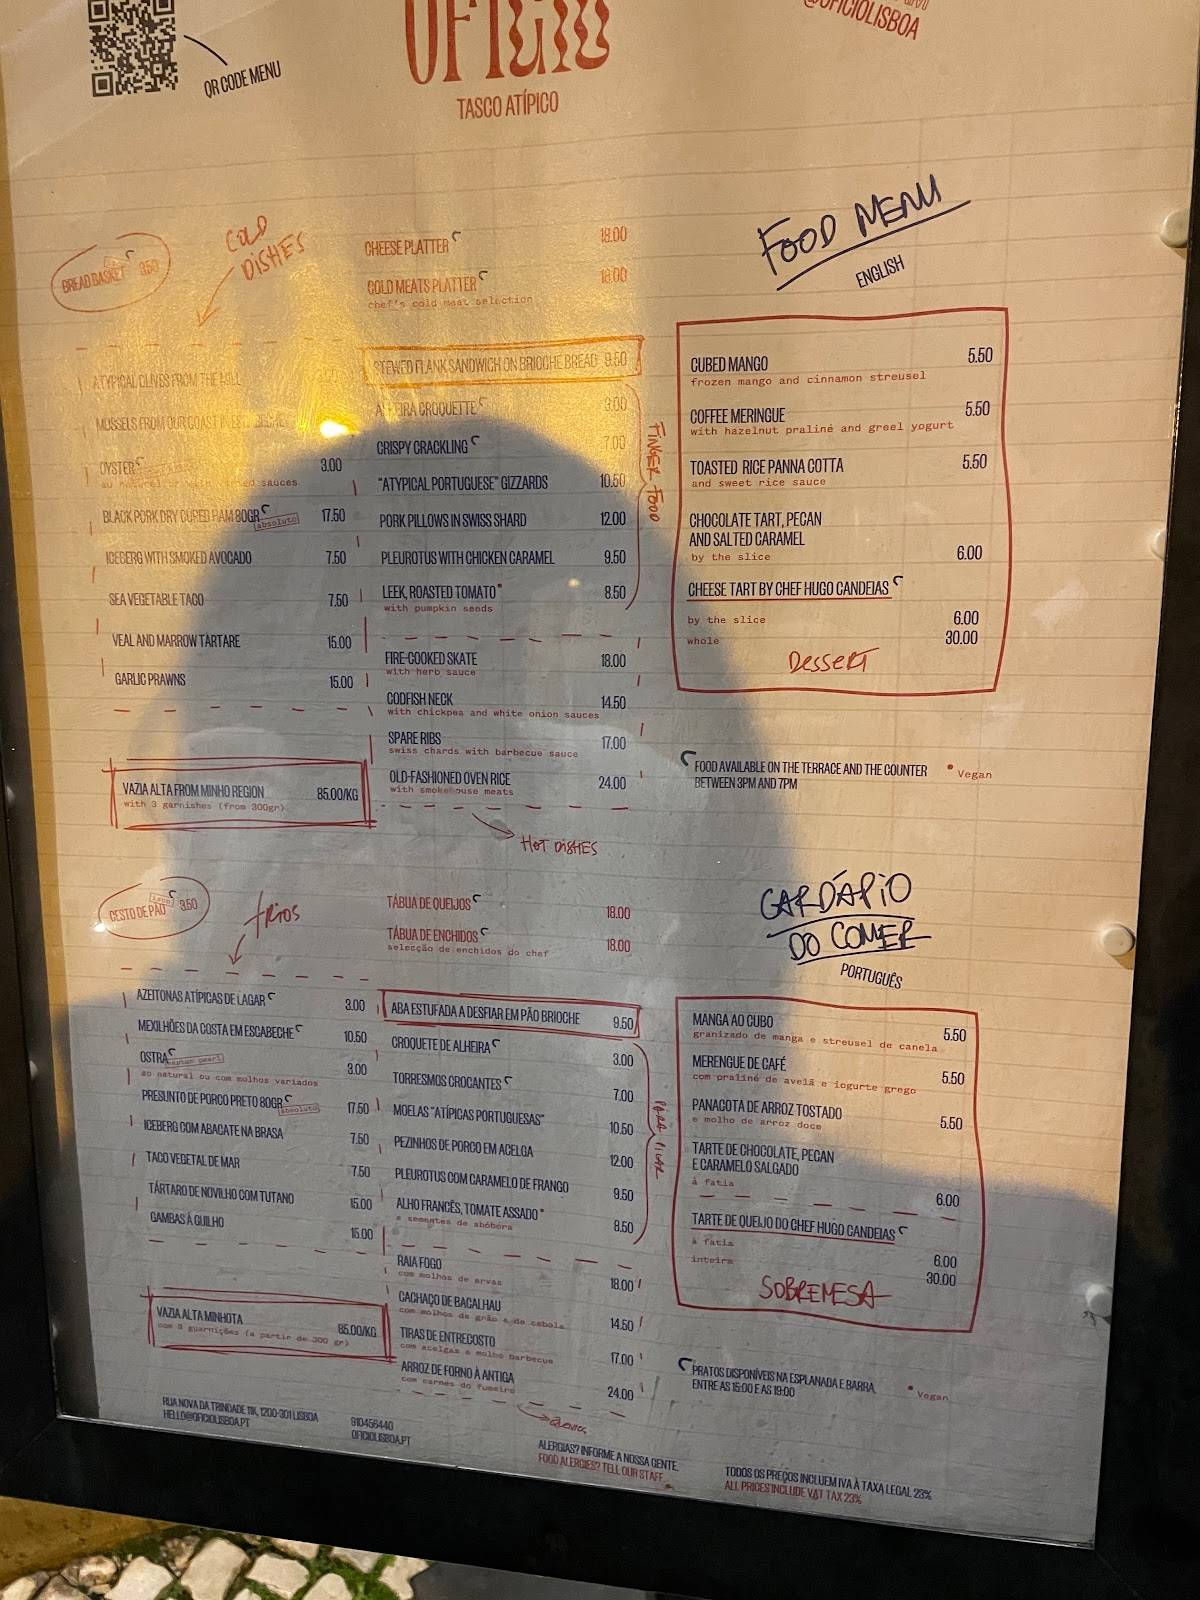 @OFICIOLISBOA
QR CODE MENU
OFICIO
TASCO ATÍPICO
FOOD MENU
ENGLISH
BREAD BASKET 3.50
COLD DISHES
CHEESE PLATTER 18.00
COLD MEATS PLATTER 18.00
chef's cold meat selection
ATYPICAL OLIVES FROM THE
MUSSELS FROM OUR COAST
OYSTER 3.00
au natural sauces
BLACK PORK DRY CURED HAM 80GR absoluto 17.50
ICEBERG WITH SMOKED AVOCADO 7.50
SEA VEGETABLE TACO 7.50
VEAL AND MARROW TARTARE 15.00
GARLIC PRAWNS 15.00
VAZIA ALTA FROM MINHO REGION 85.00/KG
with 3 garnishes (from 300gr)
STEWED FLANK SANDWICH ON BRIOCHE BREAD 9.50
ALHEIRA CROQUETTE 3.00
CRISPY CRACKLING 7.00
"ATYPICAL PORTUGUESE" GIZZARDS 10.50
PORK PILLOWS IN SWISS SHARD 12.00
PLEUROTUS WITH CHICKEN CARAMEL 9.50
LEEK, ROASTED TOMATO 8.50
with pumpkin seeds
FINGER FOOD
FIRE-COOKED SKATE 18.00
with herb sauce
CODFISH NECK 14.50
with chickpea and white onion sauces
SPARE RIBS 17.00
swiss chards with barbecue sauce
OLD-FASHIONED OVEN RICE 24.00
with smokehouse meats
HOT DISHES
CUBED MANGO 5.50
frozen mango and cinnamon streusel
COFFEE MERINGUE 5.50
with hazelnut praliné and greel yogurt
TOASTED RICE PANNA COTTA 5.50
and sweet rice sauce
CHOCOLATE TART, PECAN
AND SALTED CARAMEL
by the slice 6.00
CHEESE TART BY CHEF HUGO CANDEIAS
by the slice 6.00
whole 30.00
DESSERT
FOOD AVAILABLE ON THE TERRACE AND THE COUNTER
BETWEEN 3PM AND 7PM
Vegan
CARDÁPIO
DO COMER
PORTUGUÊS
CESTO DE PÃO 3.50
FRIOS
TÁBUA DE QUEIJOS 18.00
TÁBUA DE ENCHIDOS 18.00
selecção de enchidos do chef
AZEITONAS ATÍPICAS DE LAGAR 3.00
MEXILHÕES DA COSTA EM ESCABECHE 10.50
OSTRA 3.00
ao natural ou com molhos variados
PRESUNTO DE PORCO PRETO 80GR absoluto 17.50
ICEBERG COM ABACATE NA BRASA 7.50
TACO VEGETAL DE MAR 7.50
TÁRTARO DE NOVILHO COM TUTANO 15.00
GAMBAS À GUILHO 15.00
VAZIA ALTA MINHOTA 85.00/KG
com 3 guarnições (a partir de 300 gr)
ABA ESTUFADA A DESFIAR EM PÃO BRIOCHE 9.50
CROQUETE DE ALHEIRA 3.00
TORRESMOS CROCANTES 7.00
MOELAS "ATÍPICAS PORTUGUESAS" 10.50
PEZINHOS DE PORCO EM ACELGA 12.00
PLEUROTUS COM CARAMELO DE FRANGO 9.50
ALHO FRANCÊS, TOMATE ASSADO 8.50
e sementes de abóbora
PARA PICAR
RAIA FOGO 18.00
com molhos de ervas
CACHAÇO DE BACALHAU 14.50
com molhos de grão e de cebola
TIRAS DE ENTRECOSTO 17.00
com acelgas e molho barbecue
ARROZ DE FORNO À ANTIGA 24.00
com carnes do fumeiro
MANGA AO CUBO 5.50
granizado de manga e streusel de canela
MERENGUE DE CAFÉ 5.50
com praliné de avelã e iogurte grego
PANACOTA DE ARROZ TOSTADO 5.50
e molho de arroz doce
TARTE DE CHOCOLATE, PECAN
E CARAMELO SALGADO
à fatia 6.00
TARTE DE QUEIJO DO CHEF HUGO CANDEIAS
à fatia 6.00
inteira 30.00
SOBREMESA
PRATOS DISPONÍVEIS NA ESPLANADA E BARRA
ENTRE AS 15:00 E AS 19:00
Vegan
RUA NOVA DA TRINDADE 11K, 1200-301 LISBOA
HELLO@OFICIOLISBOA.PT
910456440
OFICIOLISBOA.PT
ALERGIAS? INFORME A NOSSA GENTE.
FOOD ALERGIES? TELL OUR STAFF.
TODOS OS PREÇOS INCLUEM IVA À TAXA LEGAL 23%
ALL PRICES INCLUDE VAT TAX 23%